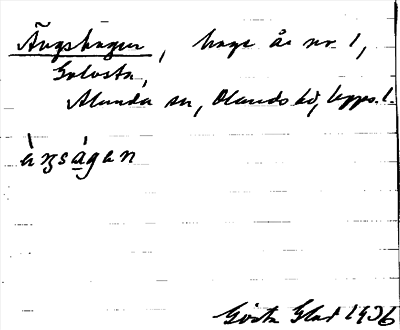 Ängshagen, hage å nr 1,
Golvsta,
Alunda sn, Olands hd, Upps. l.
àŋságan
Gösta Glad 1936